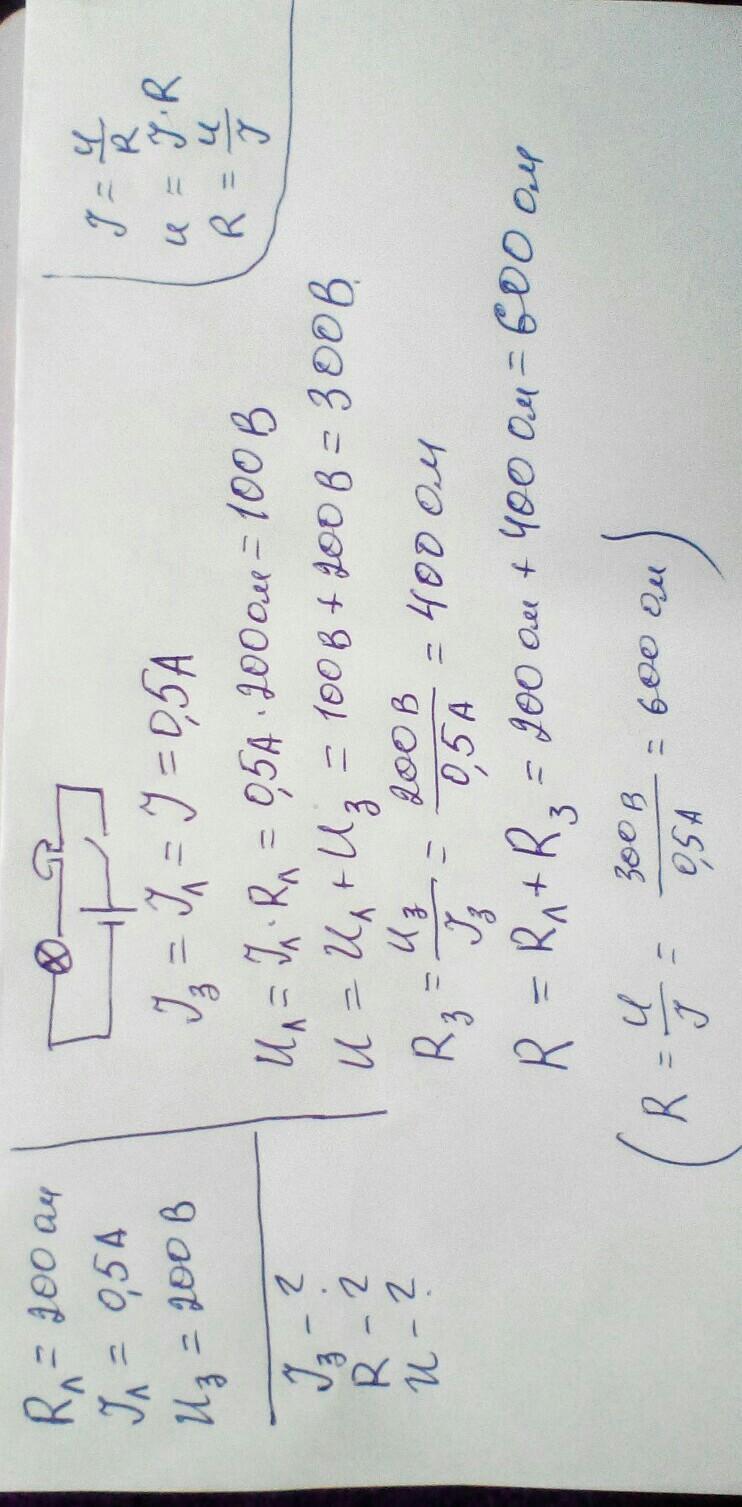 Rл = 200 ом
Iл = 0,5 А
Uз = 200 В
Iз - ?
R - ?
U - ?
Iз = Iл = I = 0,5 А
Uл = Iл · Rл = 0,5 А · 200 ом = 100 В
U = Uл + Uз = 100 В + 200 В = 300 В.
Rз = Uз/Iз = 200 В/0,5 А = 400 ом
R = Rл + Rз = 200 ом + 400 ом = 600 ом
(R = U/I = 300 В/0,5 А = 600 ом)
I = U/R
U = I · R
R = U/I